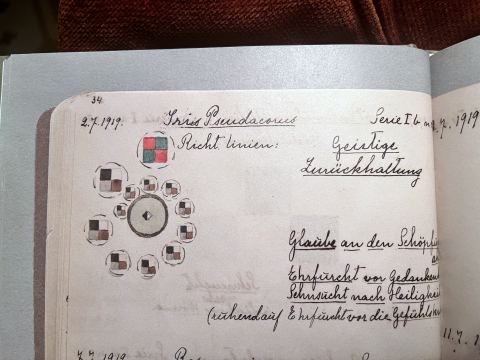 34
2.7.1919. Iris Pseudacorus Serie I b 7. 1919
Richt. linien: Geistige
Zurückhaltung
Glaube an den Schöpfu
Ehrfurcht vor Gedanken
Sehnsucht nach Heiligkei
(ruhend auf Ehrfurcht vor die Gefühls
11.7.1
7.7.1919.